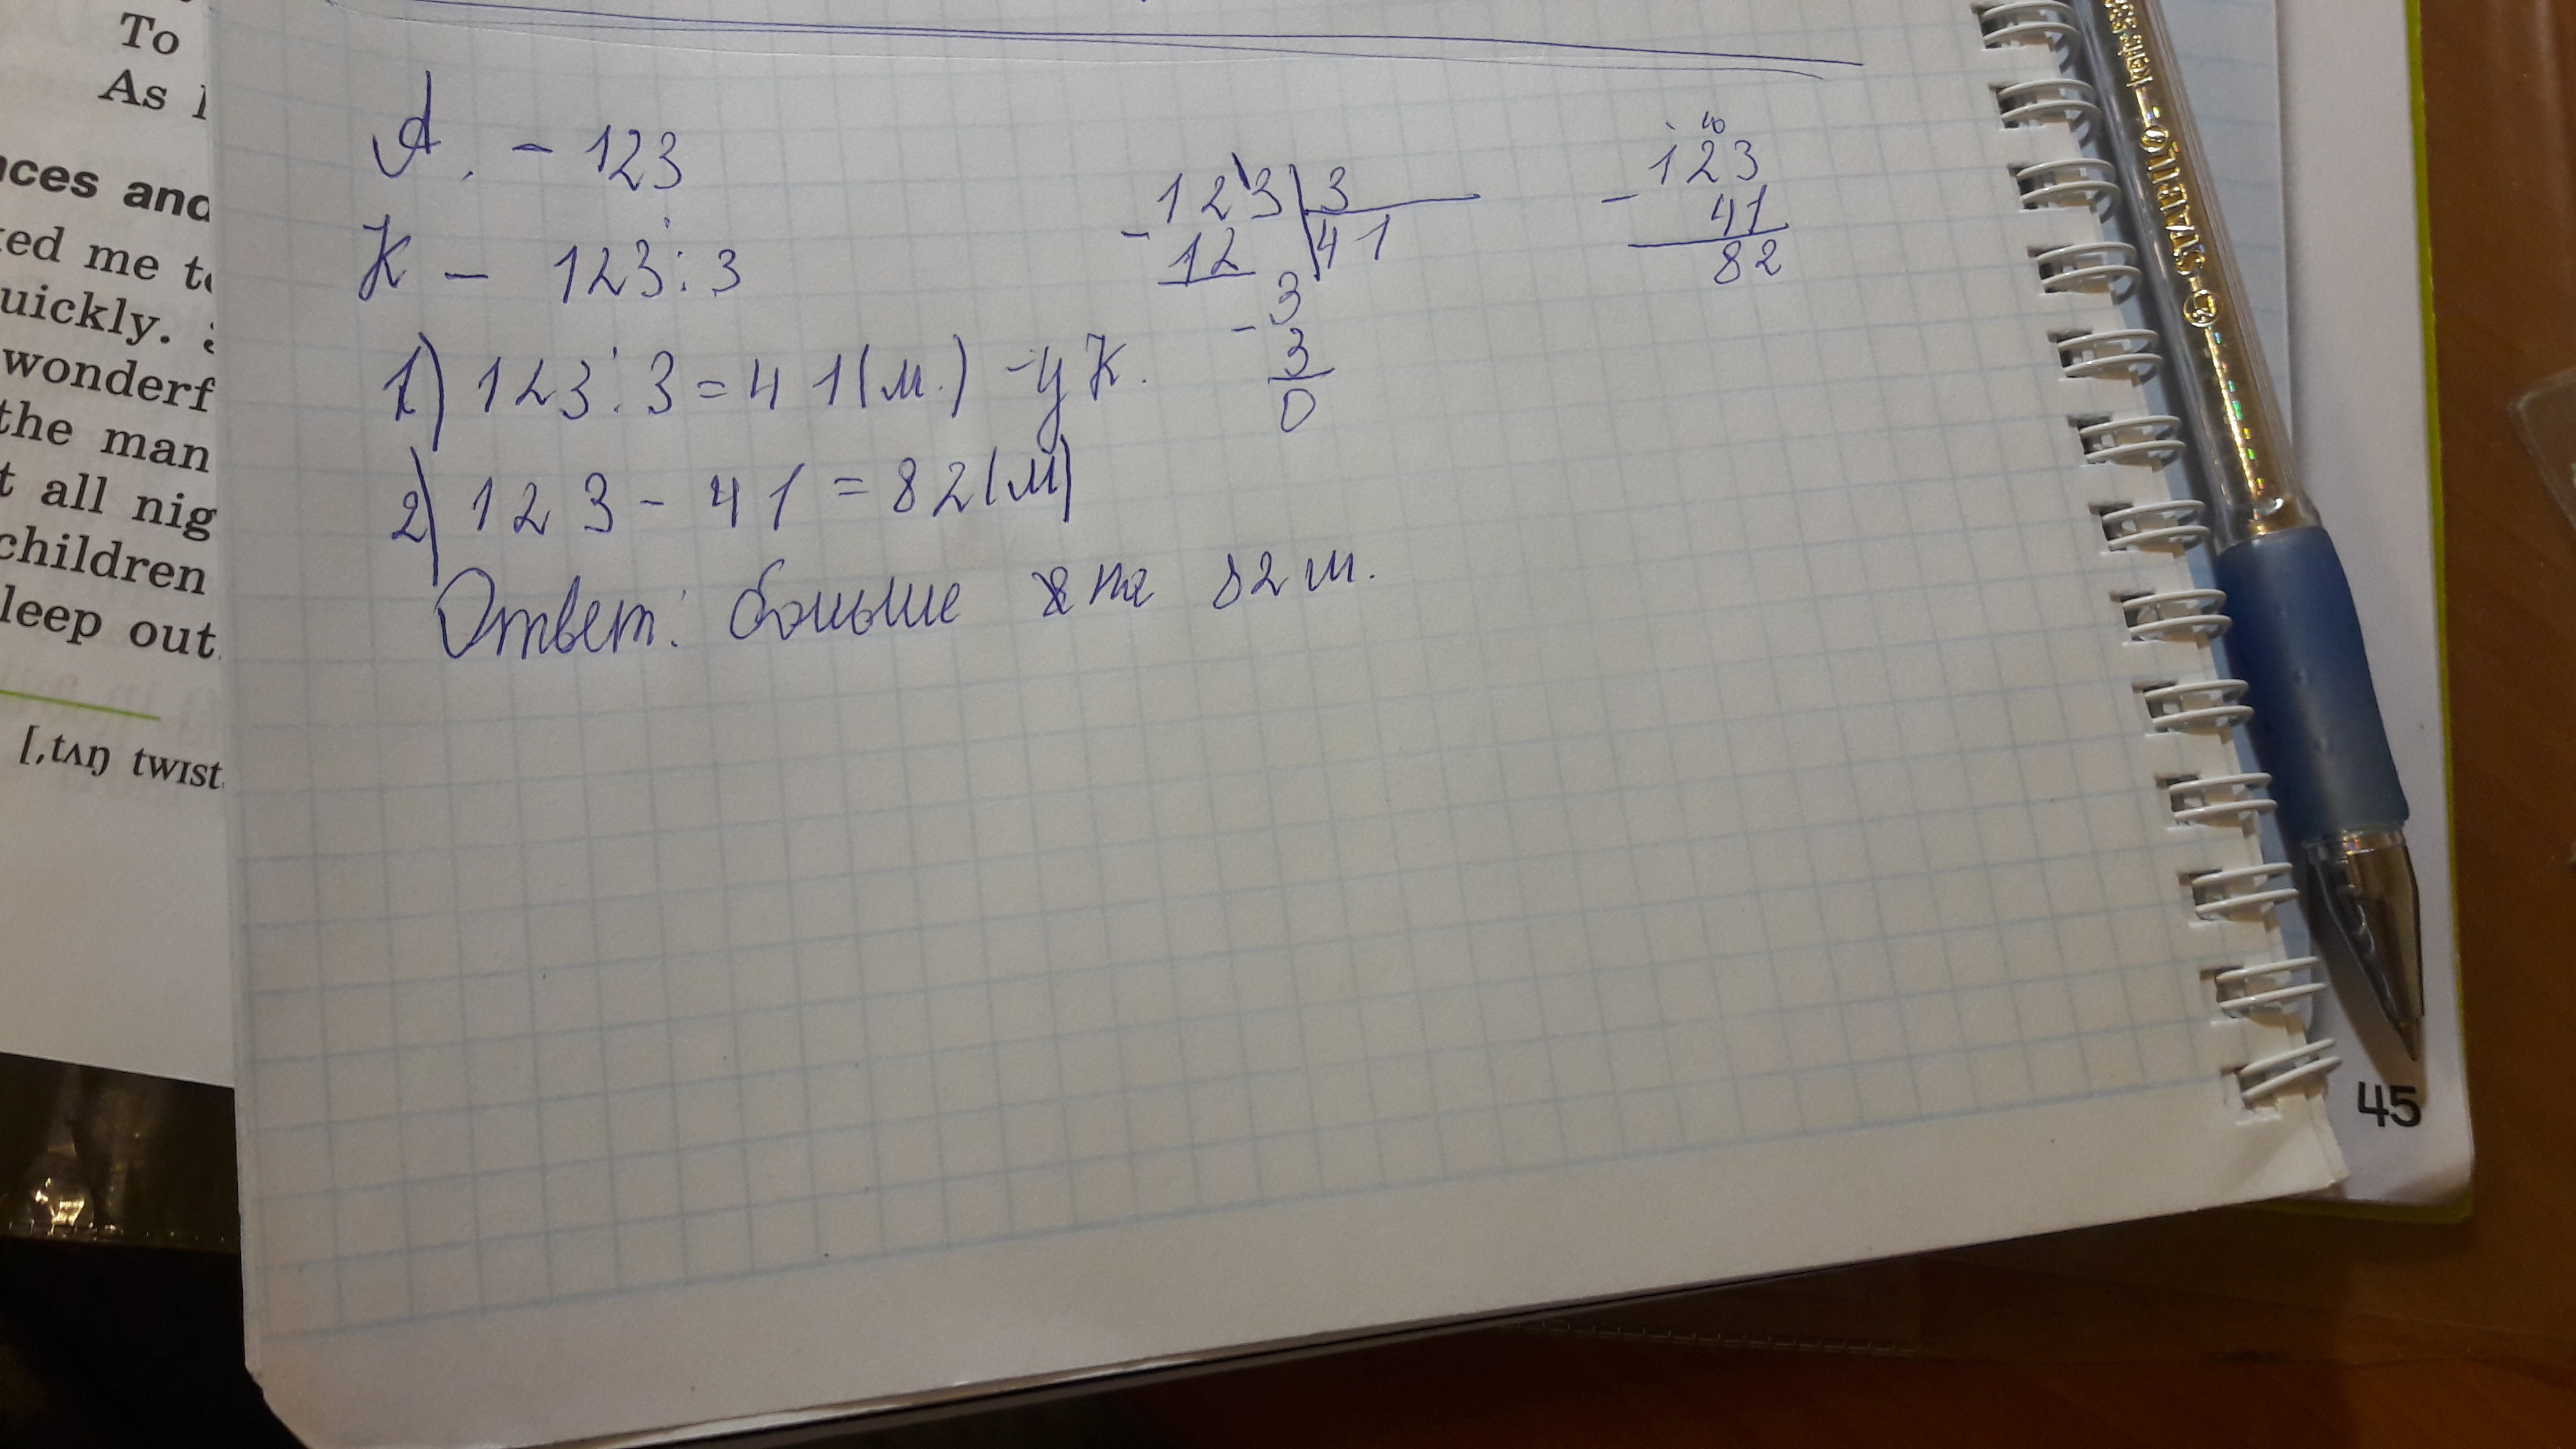 To
As
nces and
ked me to
uickly.
wonderf
the man
t all nig
children
leep out.
[ˌtʌŋ twɪst
А. - 123
К - 123 : 3
1) 123 : 3 = 41 (м.) - у К.
2) 123 - 41 = 82 (м)
Ответ: больше на 82 м.
123 | 3
- 12 | 41
3
- 3
0
10
123
- 41
82
STAEDTLER
45